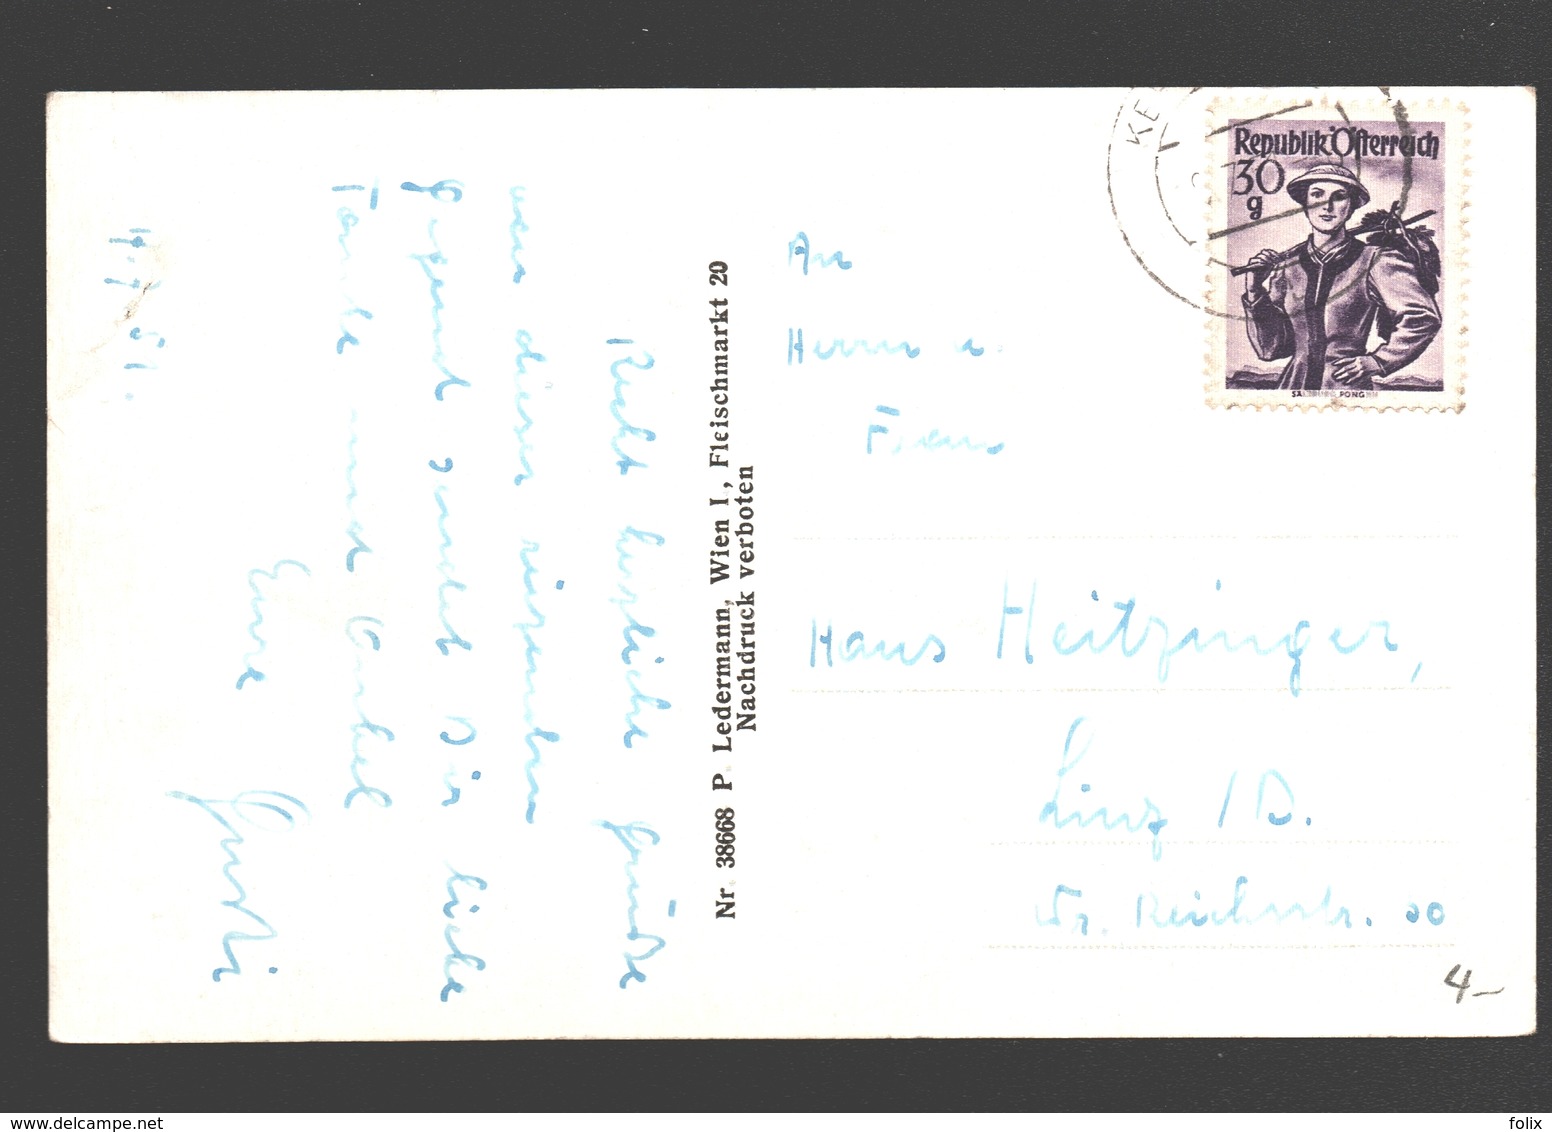 17.7.51.
Recht herzliche Grüße
aus dieser reizenden
Gegend sendet Dir liebe
Tante und Onkel
Eure
Gusti
Nr. 38668 P. Ledermann, Wien I, Fleischmarkt 20
Nachdruck verboten
KE
Republik Österreich
30
g
SALZBURG, PONGAU
An
Herrn u.
Frau
Hans Heitzinger,
Linz / D.
Wr. Reichsstr. 20
4-
www.delcampe.net
folix